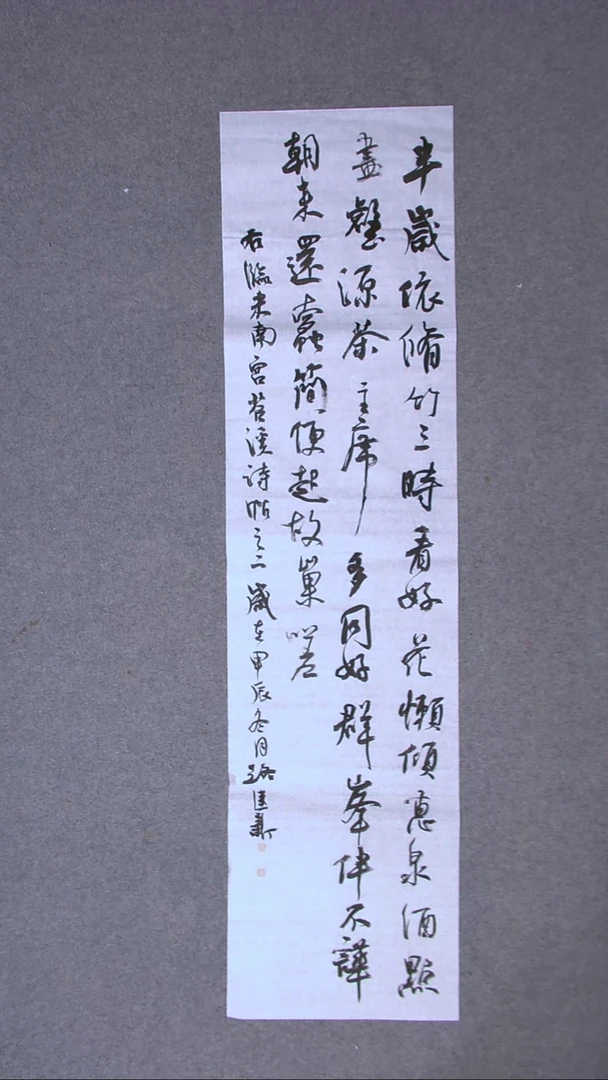 半歲依脩竹三時看好花懶傾惠泉酒點
盡壑源茶主席多同好群峯伴不譁
朝来還蠹簡便起故巢嗟
右臨米南宮苕溪詩帖之二歲在甲辰冬月路